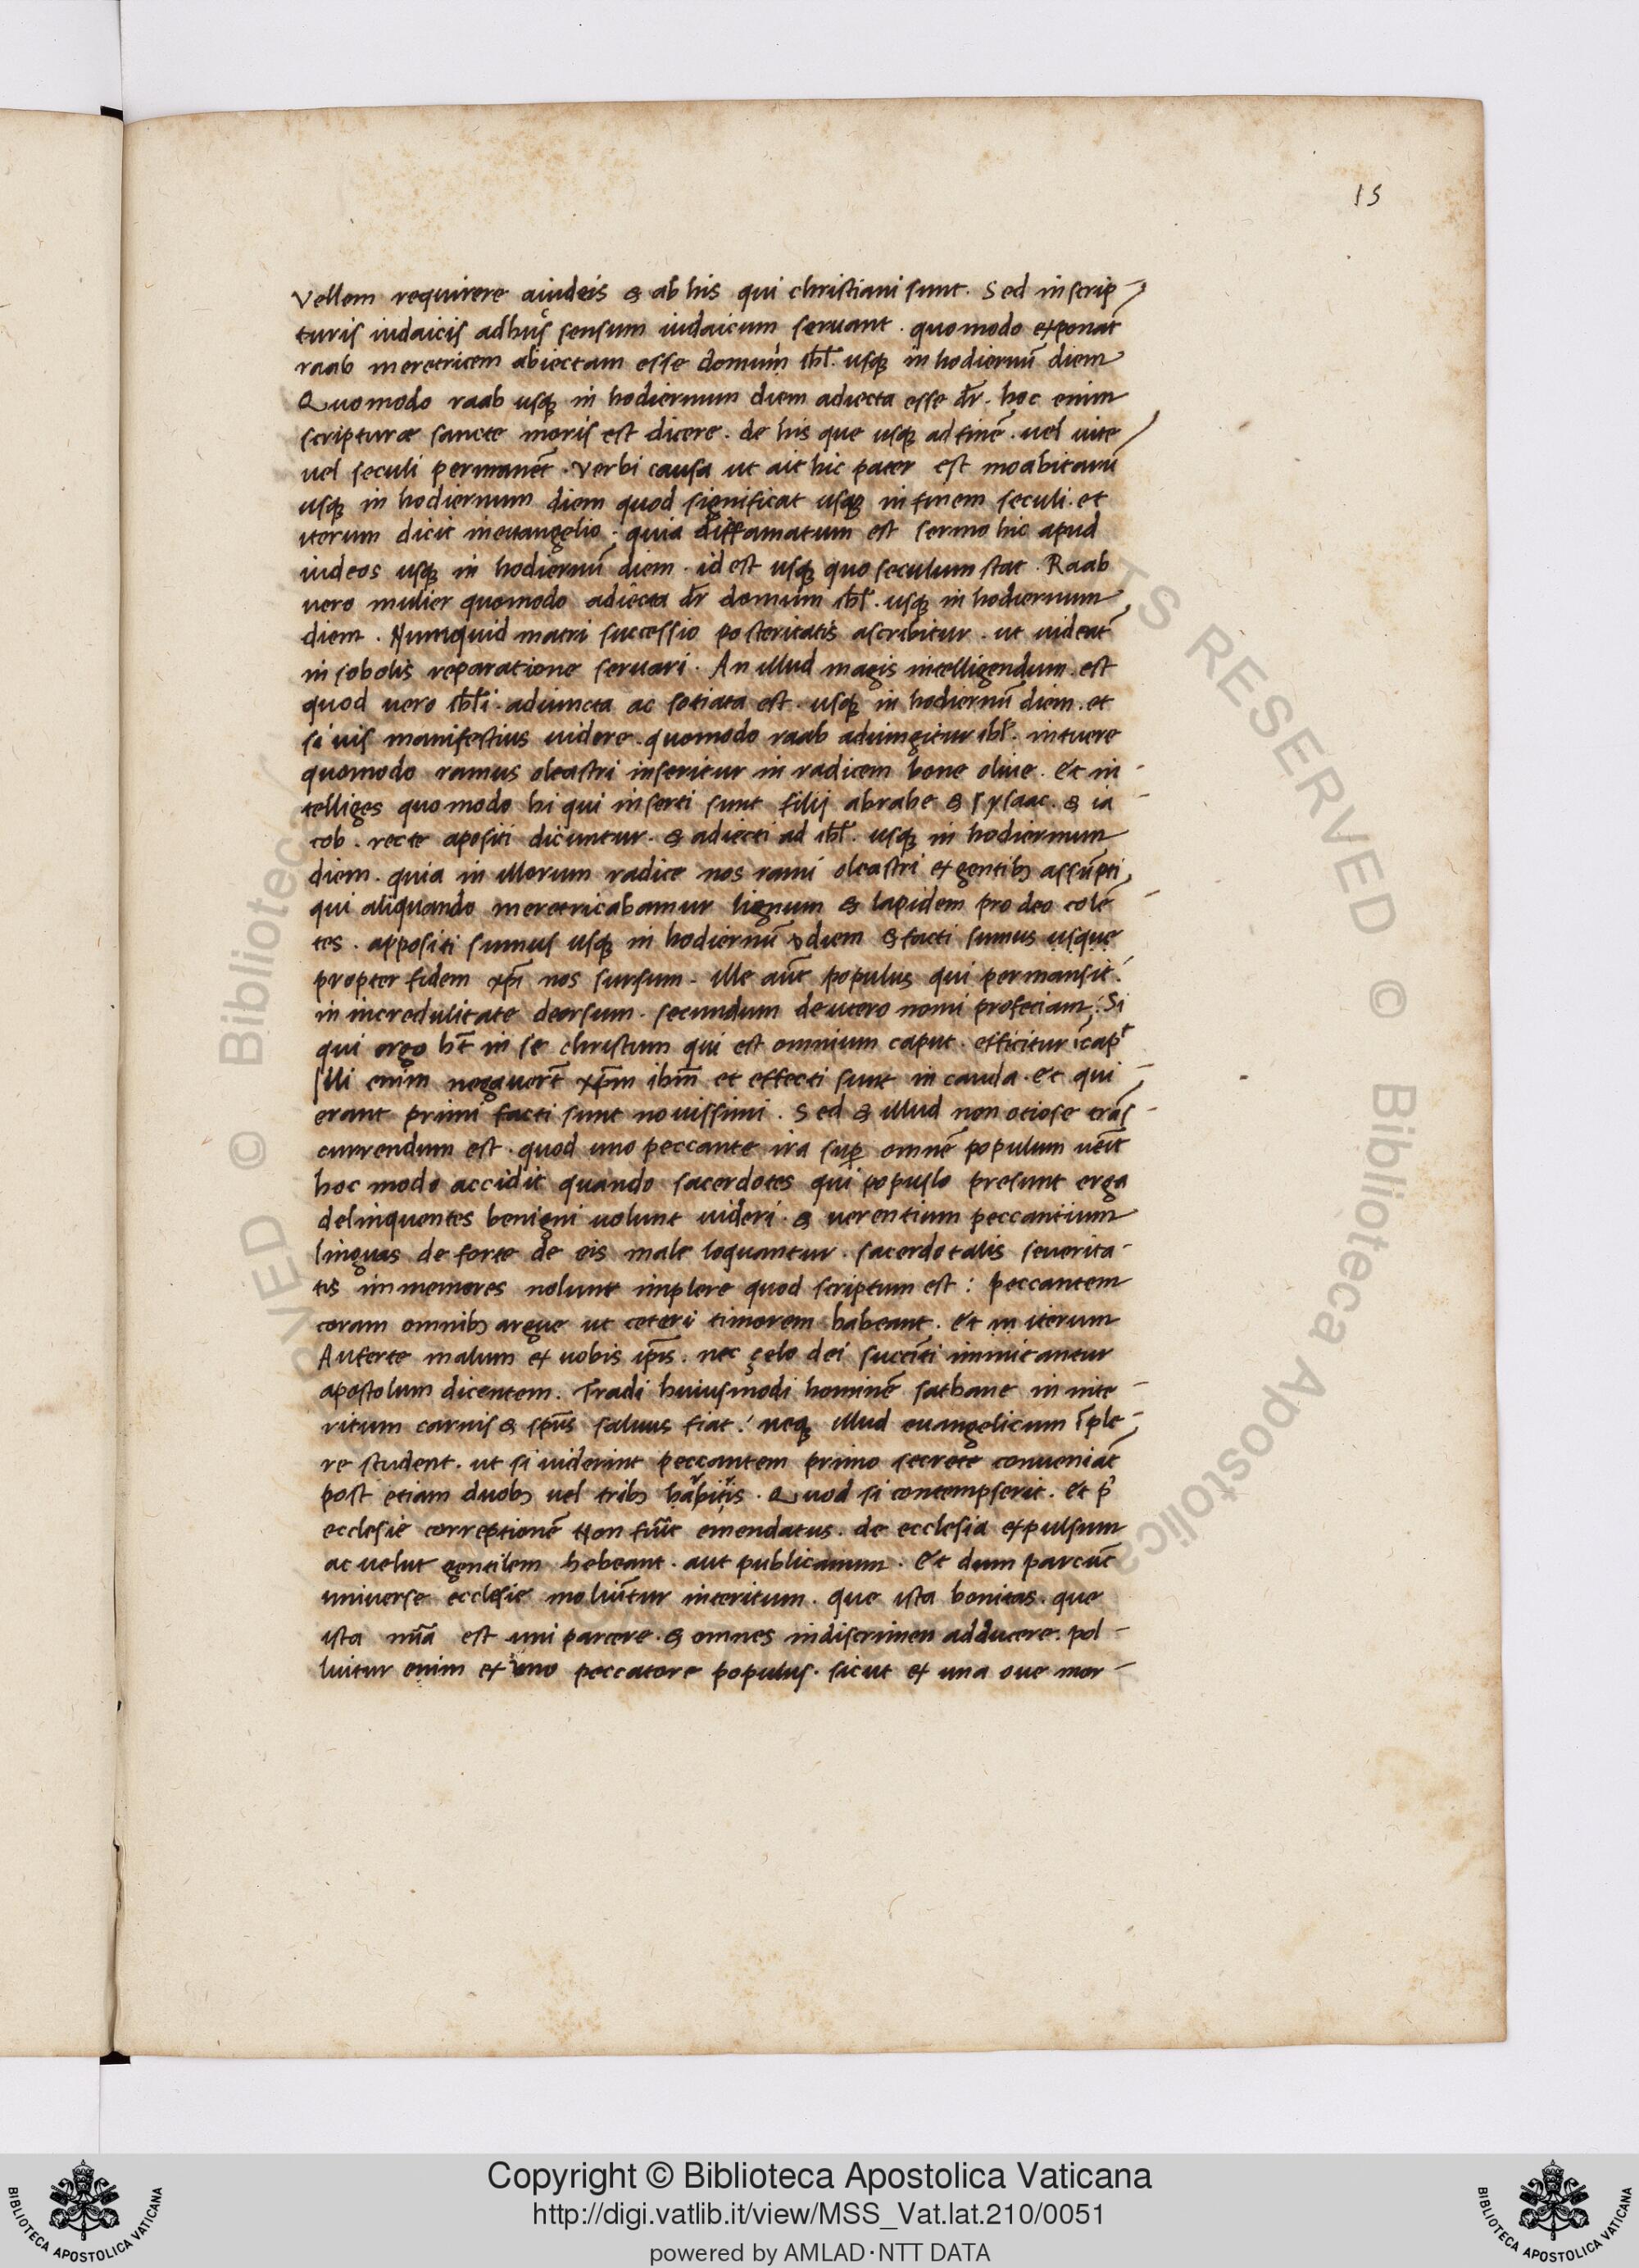 15
Vellem requirere aiudeis & ab his qui christiani sunt. Sed in scrip-
turis iudaicis adhuc sensum iudaicum seruant. quomodo exponāt
raab meretricem abiectam esse domum isrl. usq in hodiernū diem
Quomodo raab usq in hodiernum diem adiecta esse dr̄. hoc enim
scripturæ sancte moris est dicere. de his que usq ad finē. uel uite
uel seculi permanēt. verbi causa ut ait hic pater est moabitarū
usq in hodiernum diem quod significat usq in finem seculi. et
iterum dicit in euangelio. quia diffamatum est sermo hic apud
iudeos usq in hodiernū diem. id est usq quo seculum stat. Raab
uero mulier quomodo adiecta dr̄ domum isrl. usq in hodiernum
diem. Numquid matri successio posteritatis ascribitur. ut uideat̄
in sobolis reparatione seruari. An illud magis intelligendum est
quod uero isrli. adiuncta ac sotiata est. usq in hodiernū diem. et
si uis manifestius uidere. quomodo raab adiungitur isrl. intuere
quomodo ramus oleastri inseritur in radicem bone oliue. Et in-
telliges quomodo hi qui inserti sunt filij abrahe & ysaac. & ia-
cob. recte apositi dicuntur. & adiecti ad isrl. usq in hodiernum
diem. quia in illorum radice nos rami oleastri ex gentib; assūpti
qui aliquando meretricabamur lignum & lapidem pro deo colē-
tes. appositi sumus usq in hodiernū diem & facti sumus usque
propter fidem xpī nos sursum. ille aūt populus qui permansit
in incredulitate deorsum. secundum deutero nomi profetiam: Si
qui ergo ht̄ in se christum qui est omnium caput. efficitur ī cap̄
Illi enim negauerūt xp̄m ihm̄ et effecti sunt in cauda. Et qui
erant primi facti sunt nouissimi. Sed & illud non otiose trās-
currendum est. quod uno peccante ira sup omnē populum uēit
hoc modo accidit quando sacerdotes qui populo presunt erga
delinquentes benigni uolunt uideri. & uerentium peccantium
linguas de forte de eis male loquantur. sacerdotalis seuerita-
tis immemores nolunt implere quod scriptum est: peccantem
coram omnib; argue ut ceteri timorem habeant. Et in iterum
Auferte malum ex uobis ip̄is. nec çelo dei succīti immitantur
apostolum dicentem. Tradi huiusmodi hominē sathane in inte-
ritum carnis & sp̄us saluus fiat: neq illud euangelicum īple-
re student. ut si uiderint peccantem primo secrete conueniāt
post etiam duob; uel trib; Quod si contempserit. Et p̄
ecclesie correptionē non fuīt emendatus. de ecclesia expulsum
ac uelut gentilem hebeant. aut publicanum. Et dum parcūt
uniuerse ecclesie moliūtur interitum. que ista bonitas. que
ista mīa est uni parcere. & omnes in discrimen adducere. pol-
luitur enim ex uno peccatore populus. sicut ex una oue mor-
TS RESERVED © Biblioteca Apostolica
VED © Biblioteca
Copyright © Biblioteca Apostolica Vaticana
http://digi.vatlib.it/view/MSS_Vat.lat.210/0051
powered by AMLAD·NTT DATA
BIBLIOTECA APOSTOLICA VATICANA
BIBLIOTECA APOSTOLICA VATICANA